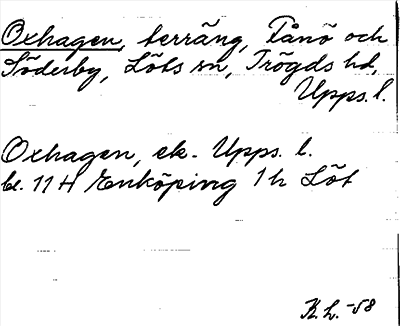 Oxhagen, terräng, Tånö och
Söderby, Löts sn, Trögds hd,
Upps. l.
Oxhagen, ek. Upps. l.
bl. 11 H Enköping 1 h Löt
K.L. -58